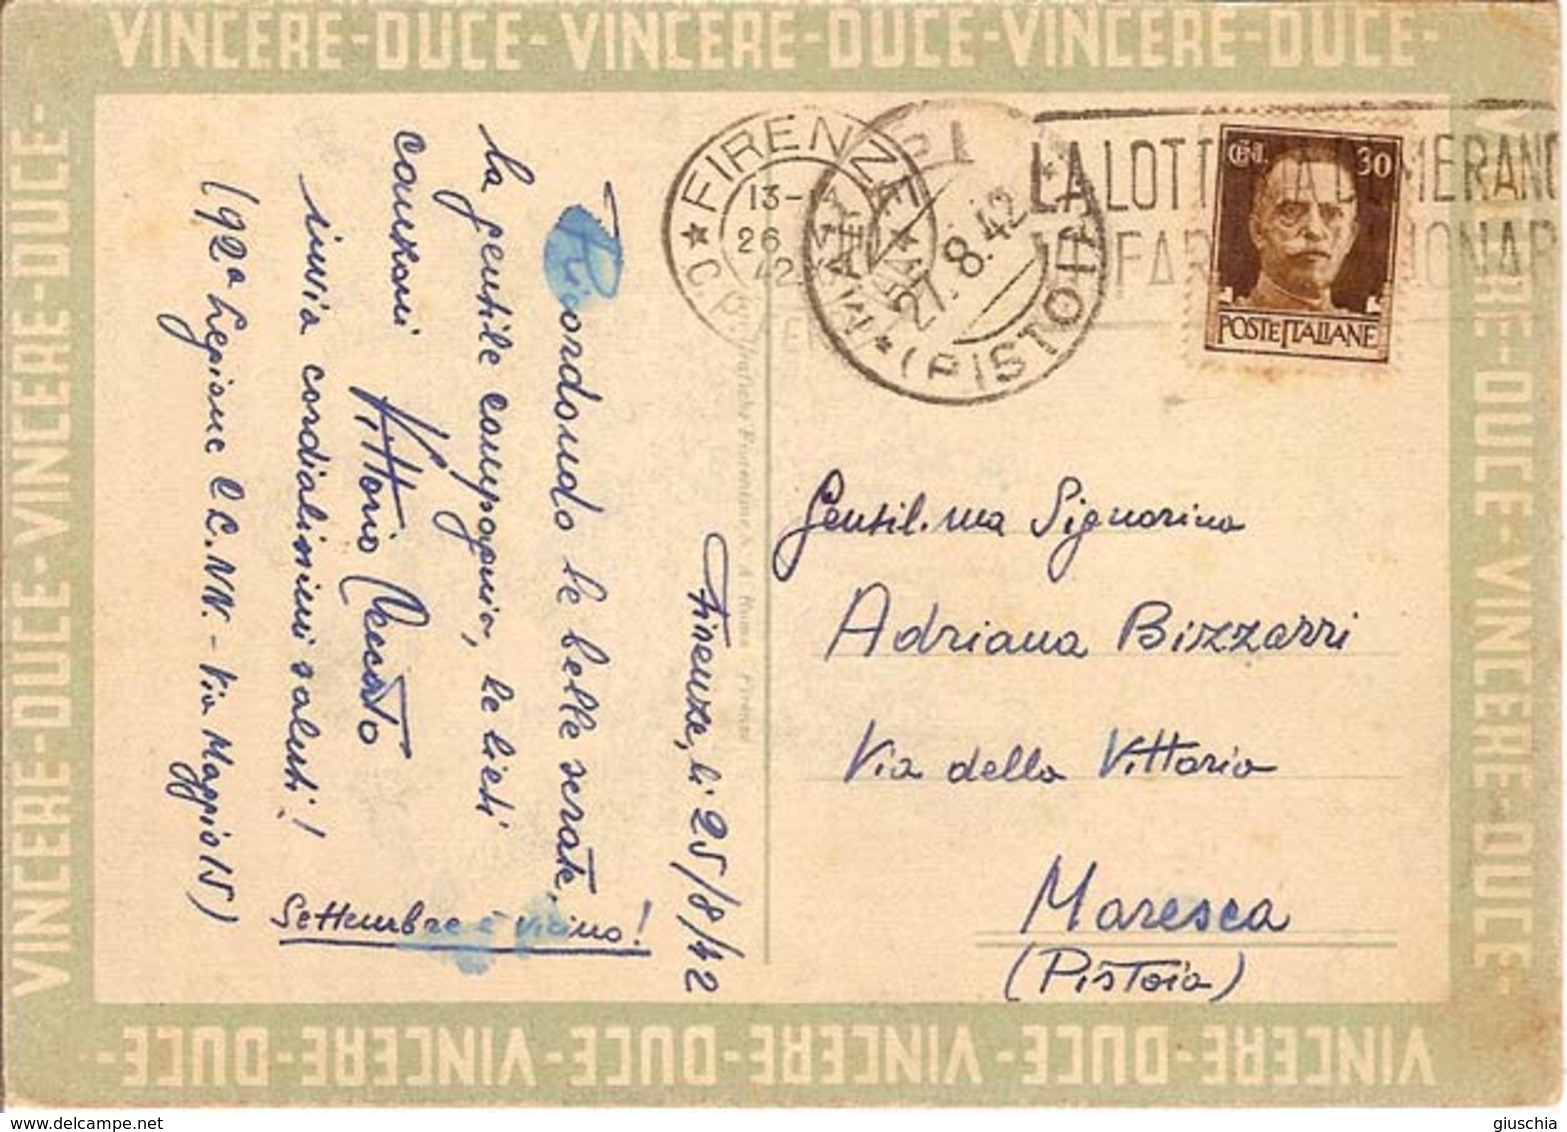 VINCERE-DUCE-VINCERE-DUCE-VINCERE-DUCE-
VINCERE-DUCE-VINCERE-DUCE-VINCERE-DUCE-
VINCERE-DUCE-VINCERE-DUCE-VINCERE-DUCE-
VINCERE-DUCE-VINCERE-DUCE-VINCERE-DUCE-
FIRENZE
13-
26
42
C.P.
MARESCA
27.8.42
(PISTOIA)
LA LOTT MERANO
FAR IONAR
CENT. 30
POSTE ITALIANE
Firenze, li 25/8/42
Ricordando le belle serate,
la gentile compagnia, le lieti
canzoni
invia cordialissimi saluti!
Vittorio
(92ª Legione CC.NN. - Via Maggio 15)
Settembre è vicino!
Fiorentine S. A Roma - Firenze
Gentil.ma Signorina
Adriana Bizzarri
Via della Vittoria
Maresca
(Pistoia)
giuschia